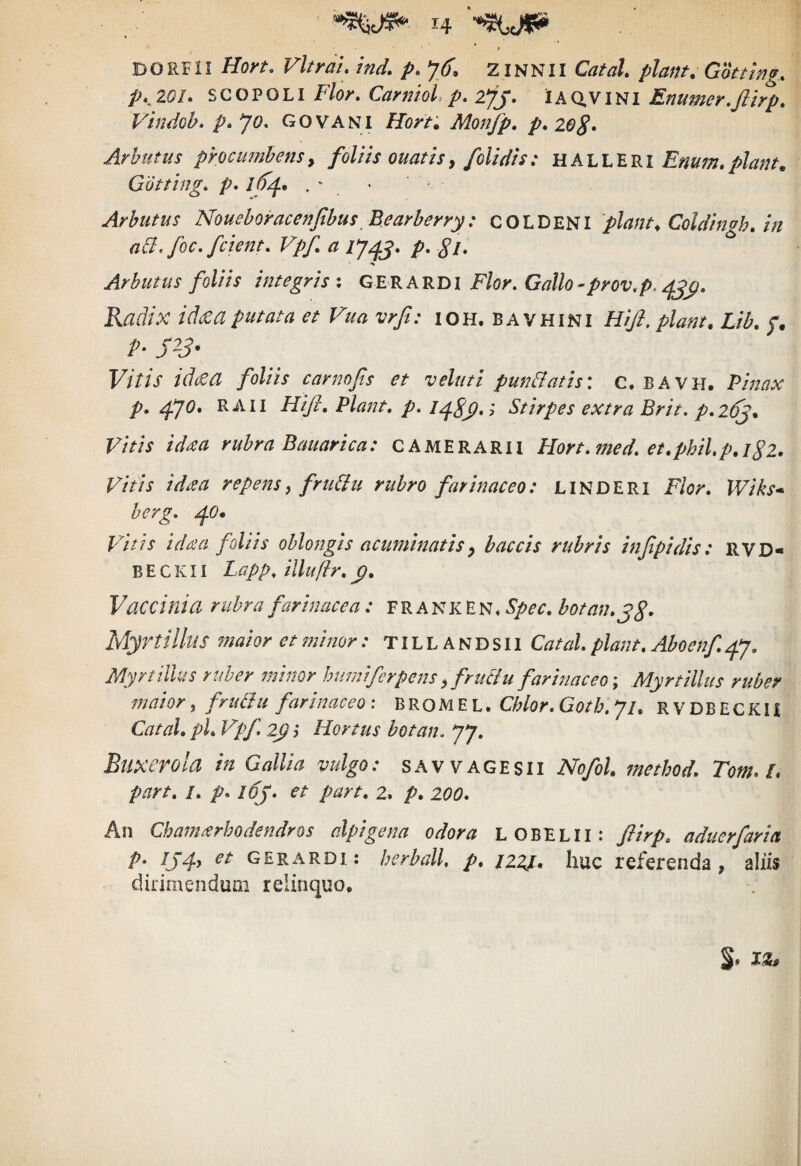 14
DORFII Hort. Vltrai. ind. p. 76. ZINNII Catal. plant. Götting.
p. 201. SCOPOLI Flor. Carniol. p. 275. IAQVINI Enumer. ſtirp.
Vindob. p. 70. GOVANI Hort. Monſp. p. 208.
Arbutus procumbens, foliis ouatis, ſolidis: HALLERI Enum. plant.
Götting. p. 164.
Arbutus Noueboracenſibus Bearberry: COLDENI plant. Coldingh. in
act. ſoc. ſcient. Vpſ. a 1743. p. 81.
Arbutus foliis integris: GERARDI Flor. Gallo-prov. p. 439.
Radix idæa putata et Vua vrſi: IOH. BAVHINI Hiſt. plant. Lib. 5.
p. 523.
Vitis idæa foliis carnoſis et veluti punctatis: C. BAVH. Pinax
p. 470. RAII Hiſt. Plant. p. 1489.; Stirpes extra Brit. p. 263.
Vitis idæa rubra Bauarica: CAMERARII Hort. med. et. phil. p. 182.
Vitis idæa repens, fructu rubro farinaceo: LINDERI Flor. Wiks-
berg. 40.
Vitis idæa foliis oblongis acuminatis, baccis rubris inſipidis: RVD-
BECKII Lapp. illuſtr. 9.
Vaccinia rubra farinacea: FRANKEN. Spec. botan. 38.
Myrtillus maior et minor: TILLANDSII Catal. plant. Aboenſ. 47.
Myrtillus ruber minor humiſerpens, fructu farinaceo; Myrtillus ruber
maior, fructu farinaceo: BROMEL. Chlor. Goth. 71. RVDBECKII
Catal. pl. Vpſ. 29; Hortus botan. 77.
Buxerola in Gallia vulgo: SAVVAGESII Noſol. method. Tom. I.
part. 1. p. 165. et part. 2. p. 200.
An Chamærhodendros alpigena odora LOBELII: ſtirp. aduerſaria
p. 154, et GERARDI: herball. p. 1221. huc referenda, aliis
dirimendum relinquo.
§. 12.